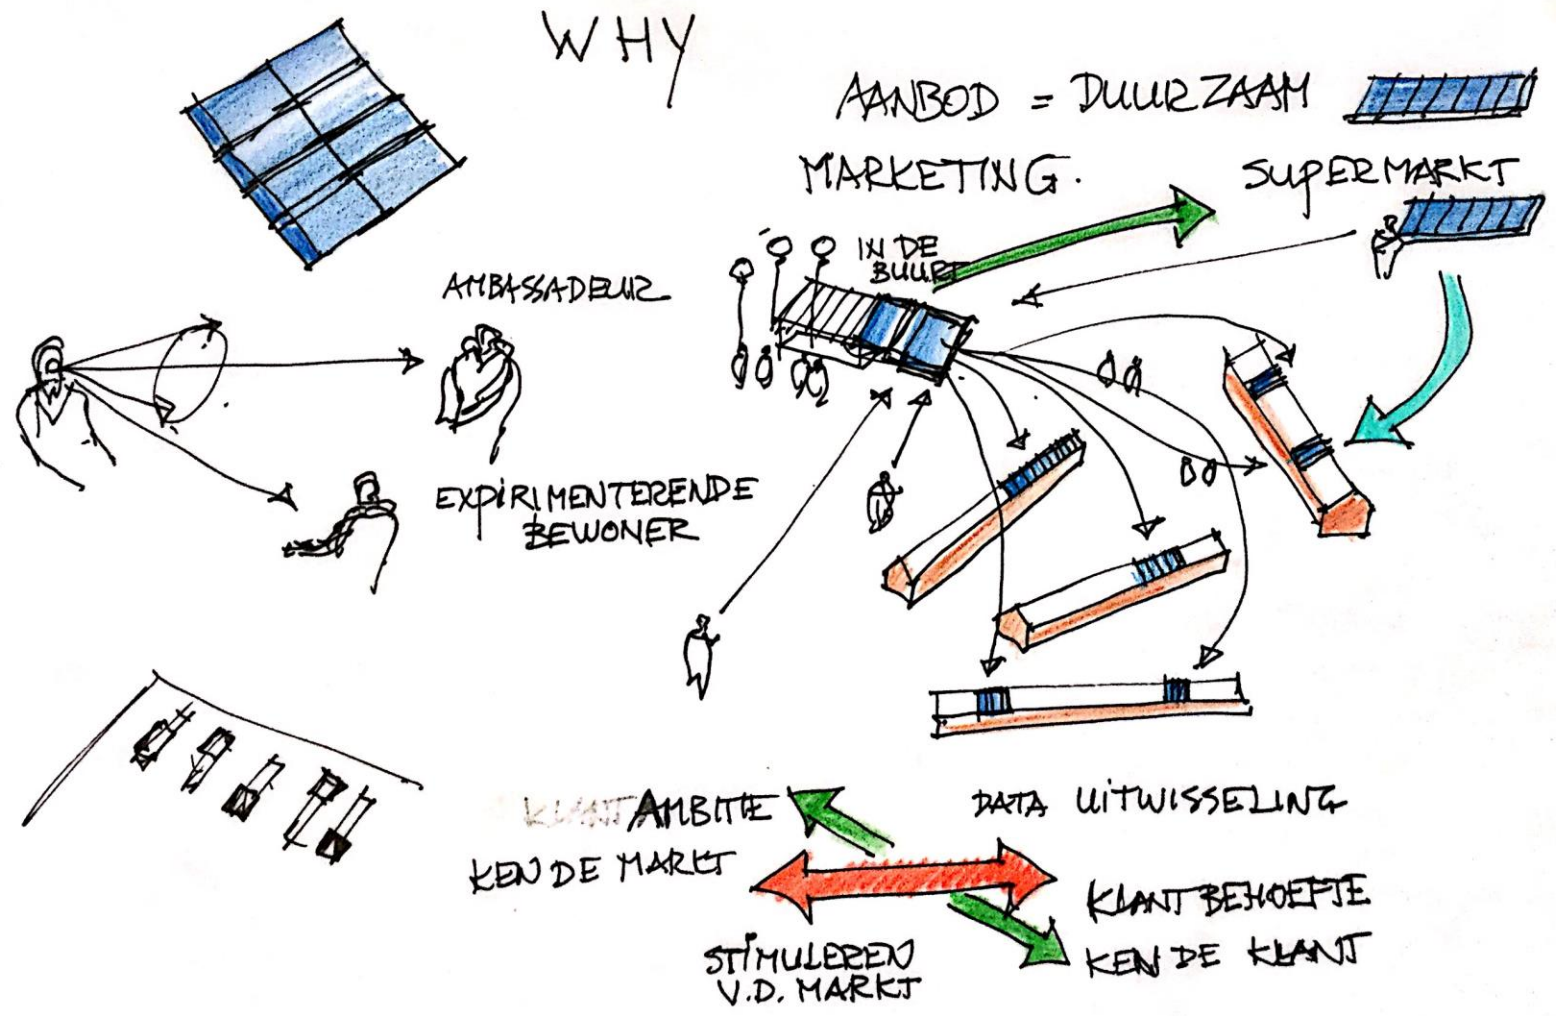 WHY
AANBOD = DUURZAAM
MARKETING.
SUPERMARKT
IN DE
BUURT
AMBASSADEUR
EXPIRIMENTERENDE
BEWONER
KLANT AMBITIE
KEN DE MARKT
DATA UITWISSELING
KLANTBEHOEFTE
KEN DE KLANT
STIMULEREN
V.D. MARKT